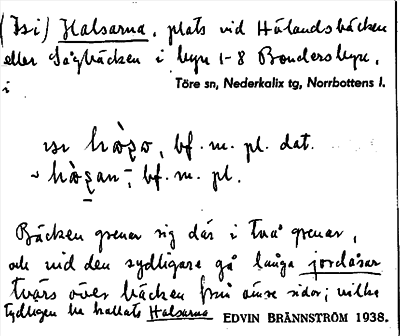 (Isi) Halsarna, plats vid Hålandsbäcken
eller Sågbäcken i byn 1-8 Bondersbyn,
i Töre sn, Nederkalix tg, Norrbottens l.
bf. m. pl. dat.
bf. m. pl.
Bäcken grenar sig där i två grenar,
och vid den sydligare gå långa jordåsar
tvärs över bäcken från ömse sidor; vilka
tydligen ha kallats Halsarna
EDVIN BRÄNNSTRÖM 1938.